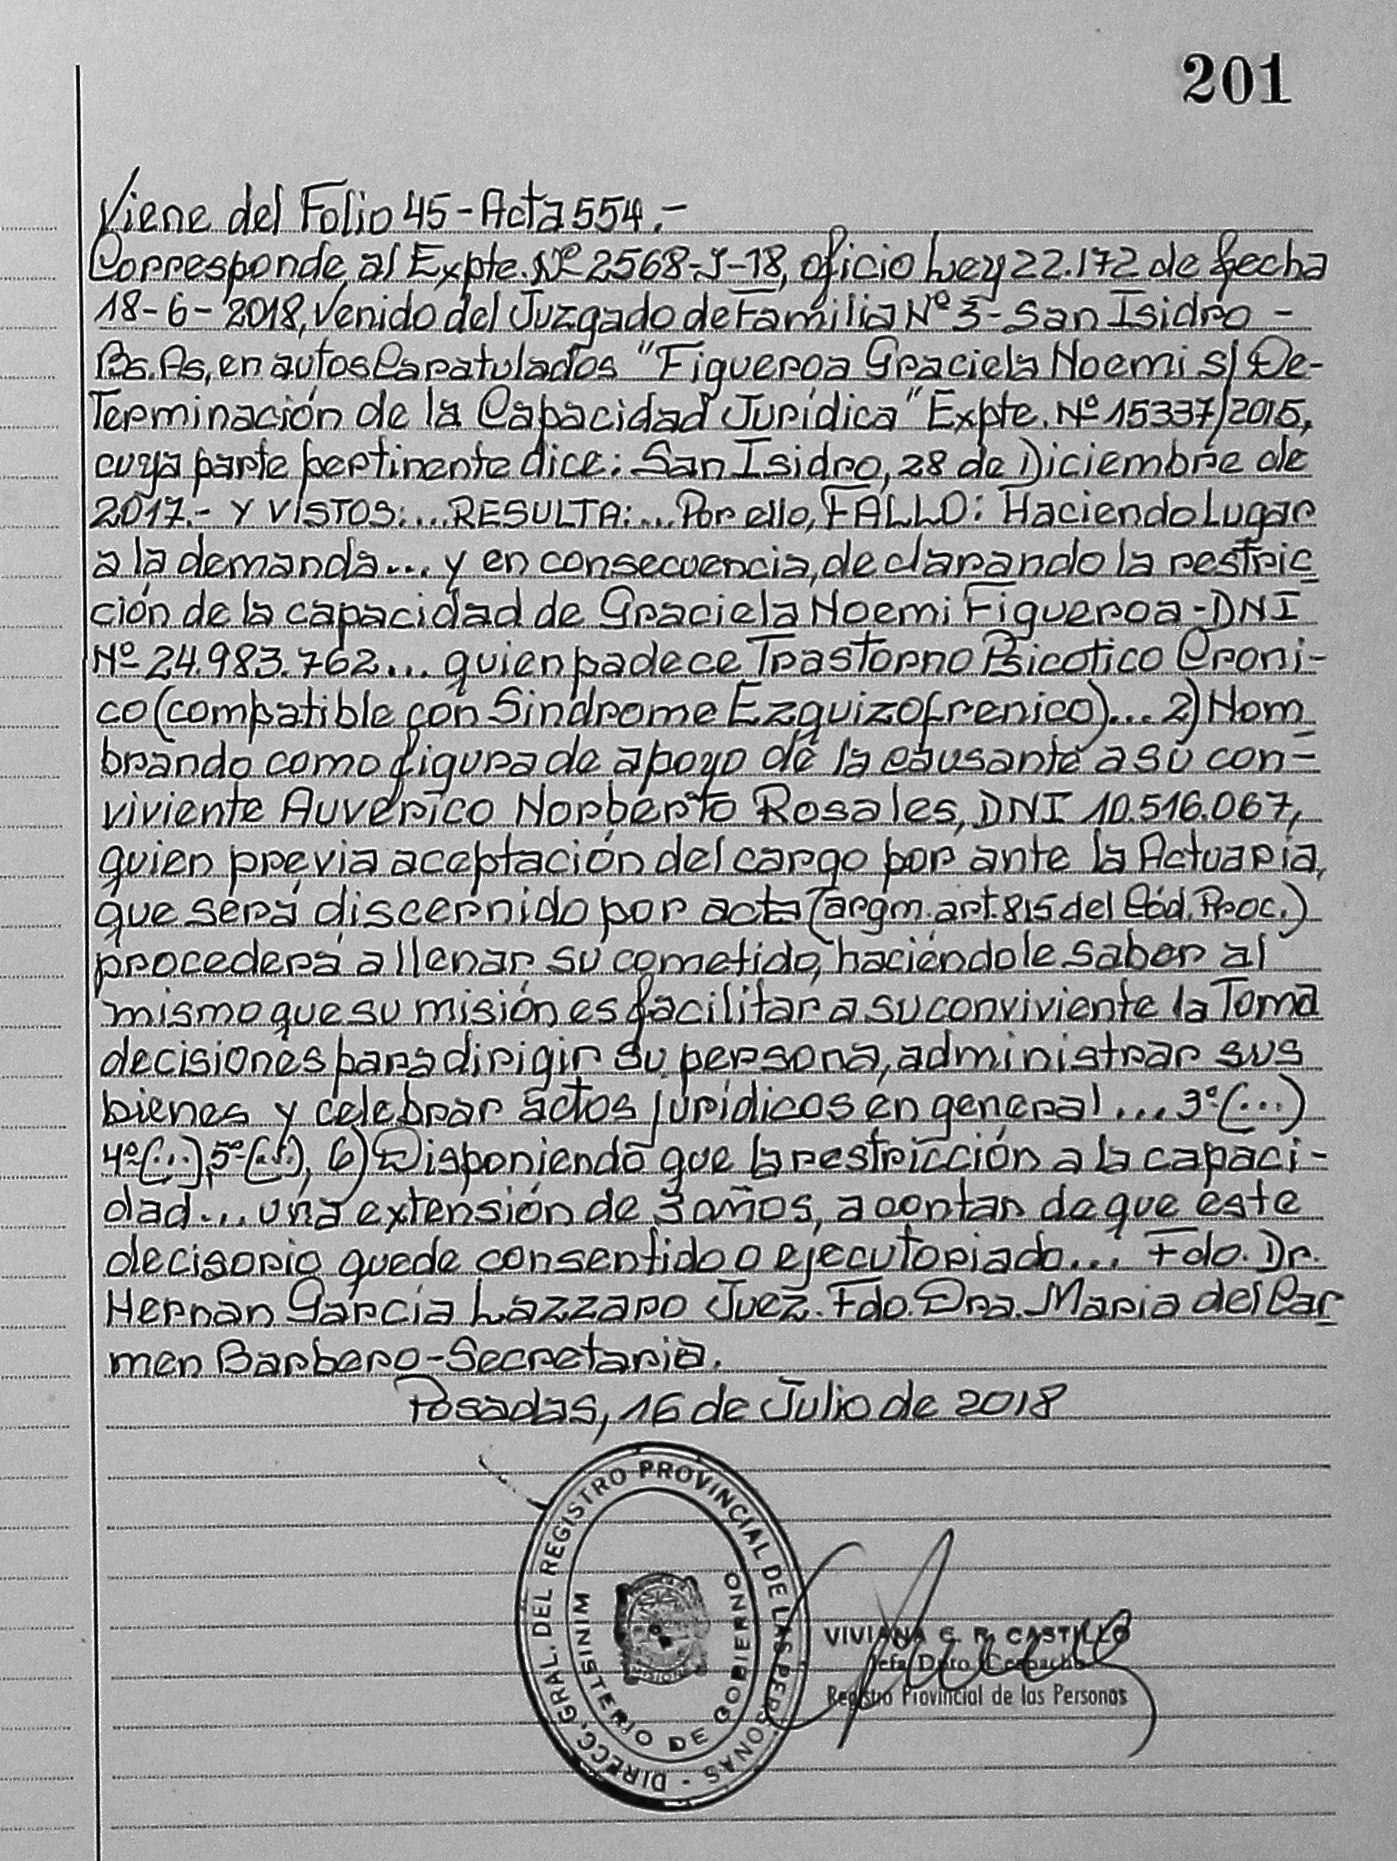 201
Viene del Folio 45-Acta 554.-
Corresponde al Expte. Nº 2568-J-18, oficio Ley 22.172 de fecha
18-6-2018, venido del Juzgado de Familia Nº 3-San Isidro-
Bs. As, en autos Caratulados "Figueroa Graciela Noemi s/ De-
Terminación de la Capacidad Jurídica" Expte. Nº 15337/2015,
cuya parte pertinente dice: San Isidro, 28 de Diciembre de
2017.- Y VISTOS:...RESULTA:...Por ello, FALLO: Haciendo Lugar
a la demanda... y en consecuencia, declarando la restric
ción de la capacidad de Graciela Noemi Figueroa-DNI
Nº 24.983.762... quien padece Trastorno Psicotico Croni-
co (compatible con Sindrome Ezquizofrenico)... 2) Nom
brando como figura de apoyo de la causante a su con-
viviente Auverico Norberto Rosales, DNI 10.516.067,
quien previa aceptación del cargo por ante la Actuaria,
que será discernido por acta (argm. art. 815 del Cód. Proc.)
procederá a llenar su cometido, haciéndole saber al
mismo que su misión es facilitar a su conviviente la Toma
decisiones para dirigir su persona, administrar sus
bienes y celebrar actos jurídicos en general... 3º(...)
4º(...), 5º(...), 6) Disponiendo que la restricción a la capaci-
dad... una extensión de 3 años, a contar de que este
decisorio quede consentido o ejecutoriado... Fdo. Dr.
Hernan García Lazzaro Juez. Fdo. Dra. Maria del Car
men Barbero-Secretaria.
Posadas, 16 de Julio de 2018
DIRECC. GRAL. DEL REGISTRO PROVINCIAL DE LAS PERSONAS -
MINISTERIO DE GOBIERNO
MISIONES
VIVIANA G. R. CASTILLO
Jefa Dpto.
Registro Provincial de las Personas